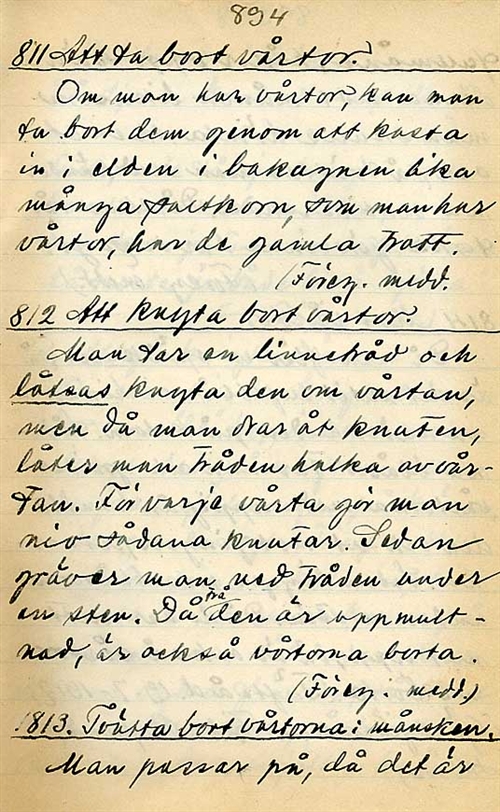 894
811 Att ta bort vårtor.
Om man har vårtor, kan man
ta bort dem genom att kasta
in i elden i bakugnen lika
många saltkorn, som man har
vårtor, har de gamla trott.
(Föreg. medd.
812 Att knyta bort vårtor.
Man tar en linnetråd och
låtsas knyta den om vårtan,
men då man drar åt knuten,
låter man tråden halka av vår-
tan. För varje vårta gör man
nio sådana knutar. Sedan
gräver man ned tråden under
en sten. Då trå den är uppmult-
nad, är också vårtorna borta.
(Föreg. medd.)
813. Tvätta bort vårtorna i månsken.
Man passar på, då det är